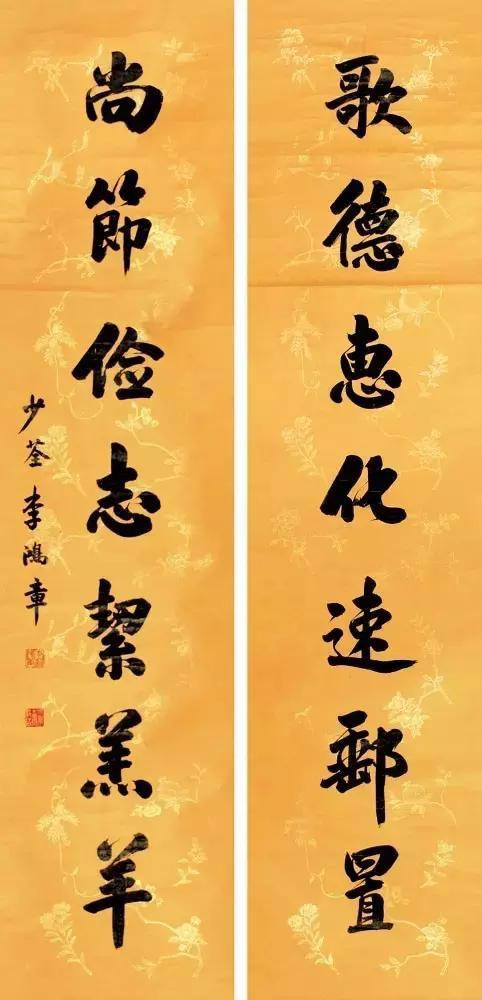 歌德惠化速郵置
尚節儉志絜羔羊
少荃李鴻章